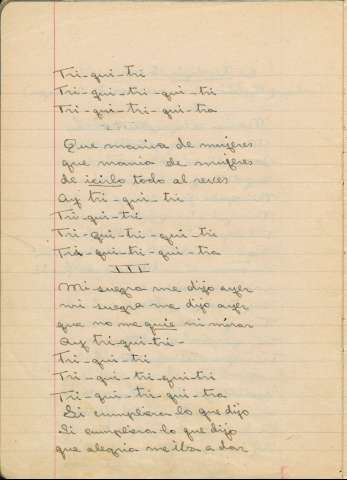 Tri-qui-tri
Tri-qui-tri-qui-tri
Tri-qui-tri-qui-tra
Que mania de mujeres
que mania de mujeres
de icirlo todo al reves
Ay tri-qui-tri
Tri-qui-tri
Tri-qui-tri-qui-tri
Tri-qui-tri-qui-tra
III
Mi suegra me dijo ayer
mi suegra me dijo ayer
que no me quie ni mirar
Ay tri-qui-tri-
Tri-qui-tri
Tri-qui-tri-qui-tri
Tri-qui-tri-qui-tra
Si cumpliera lo que dijo
Si cumpliera lo que dijo
que alegria me iba a dar